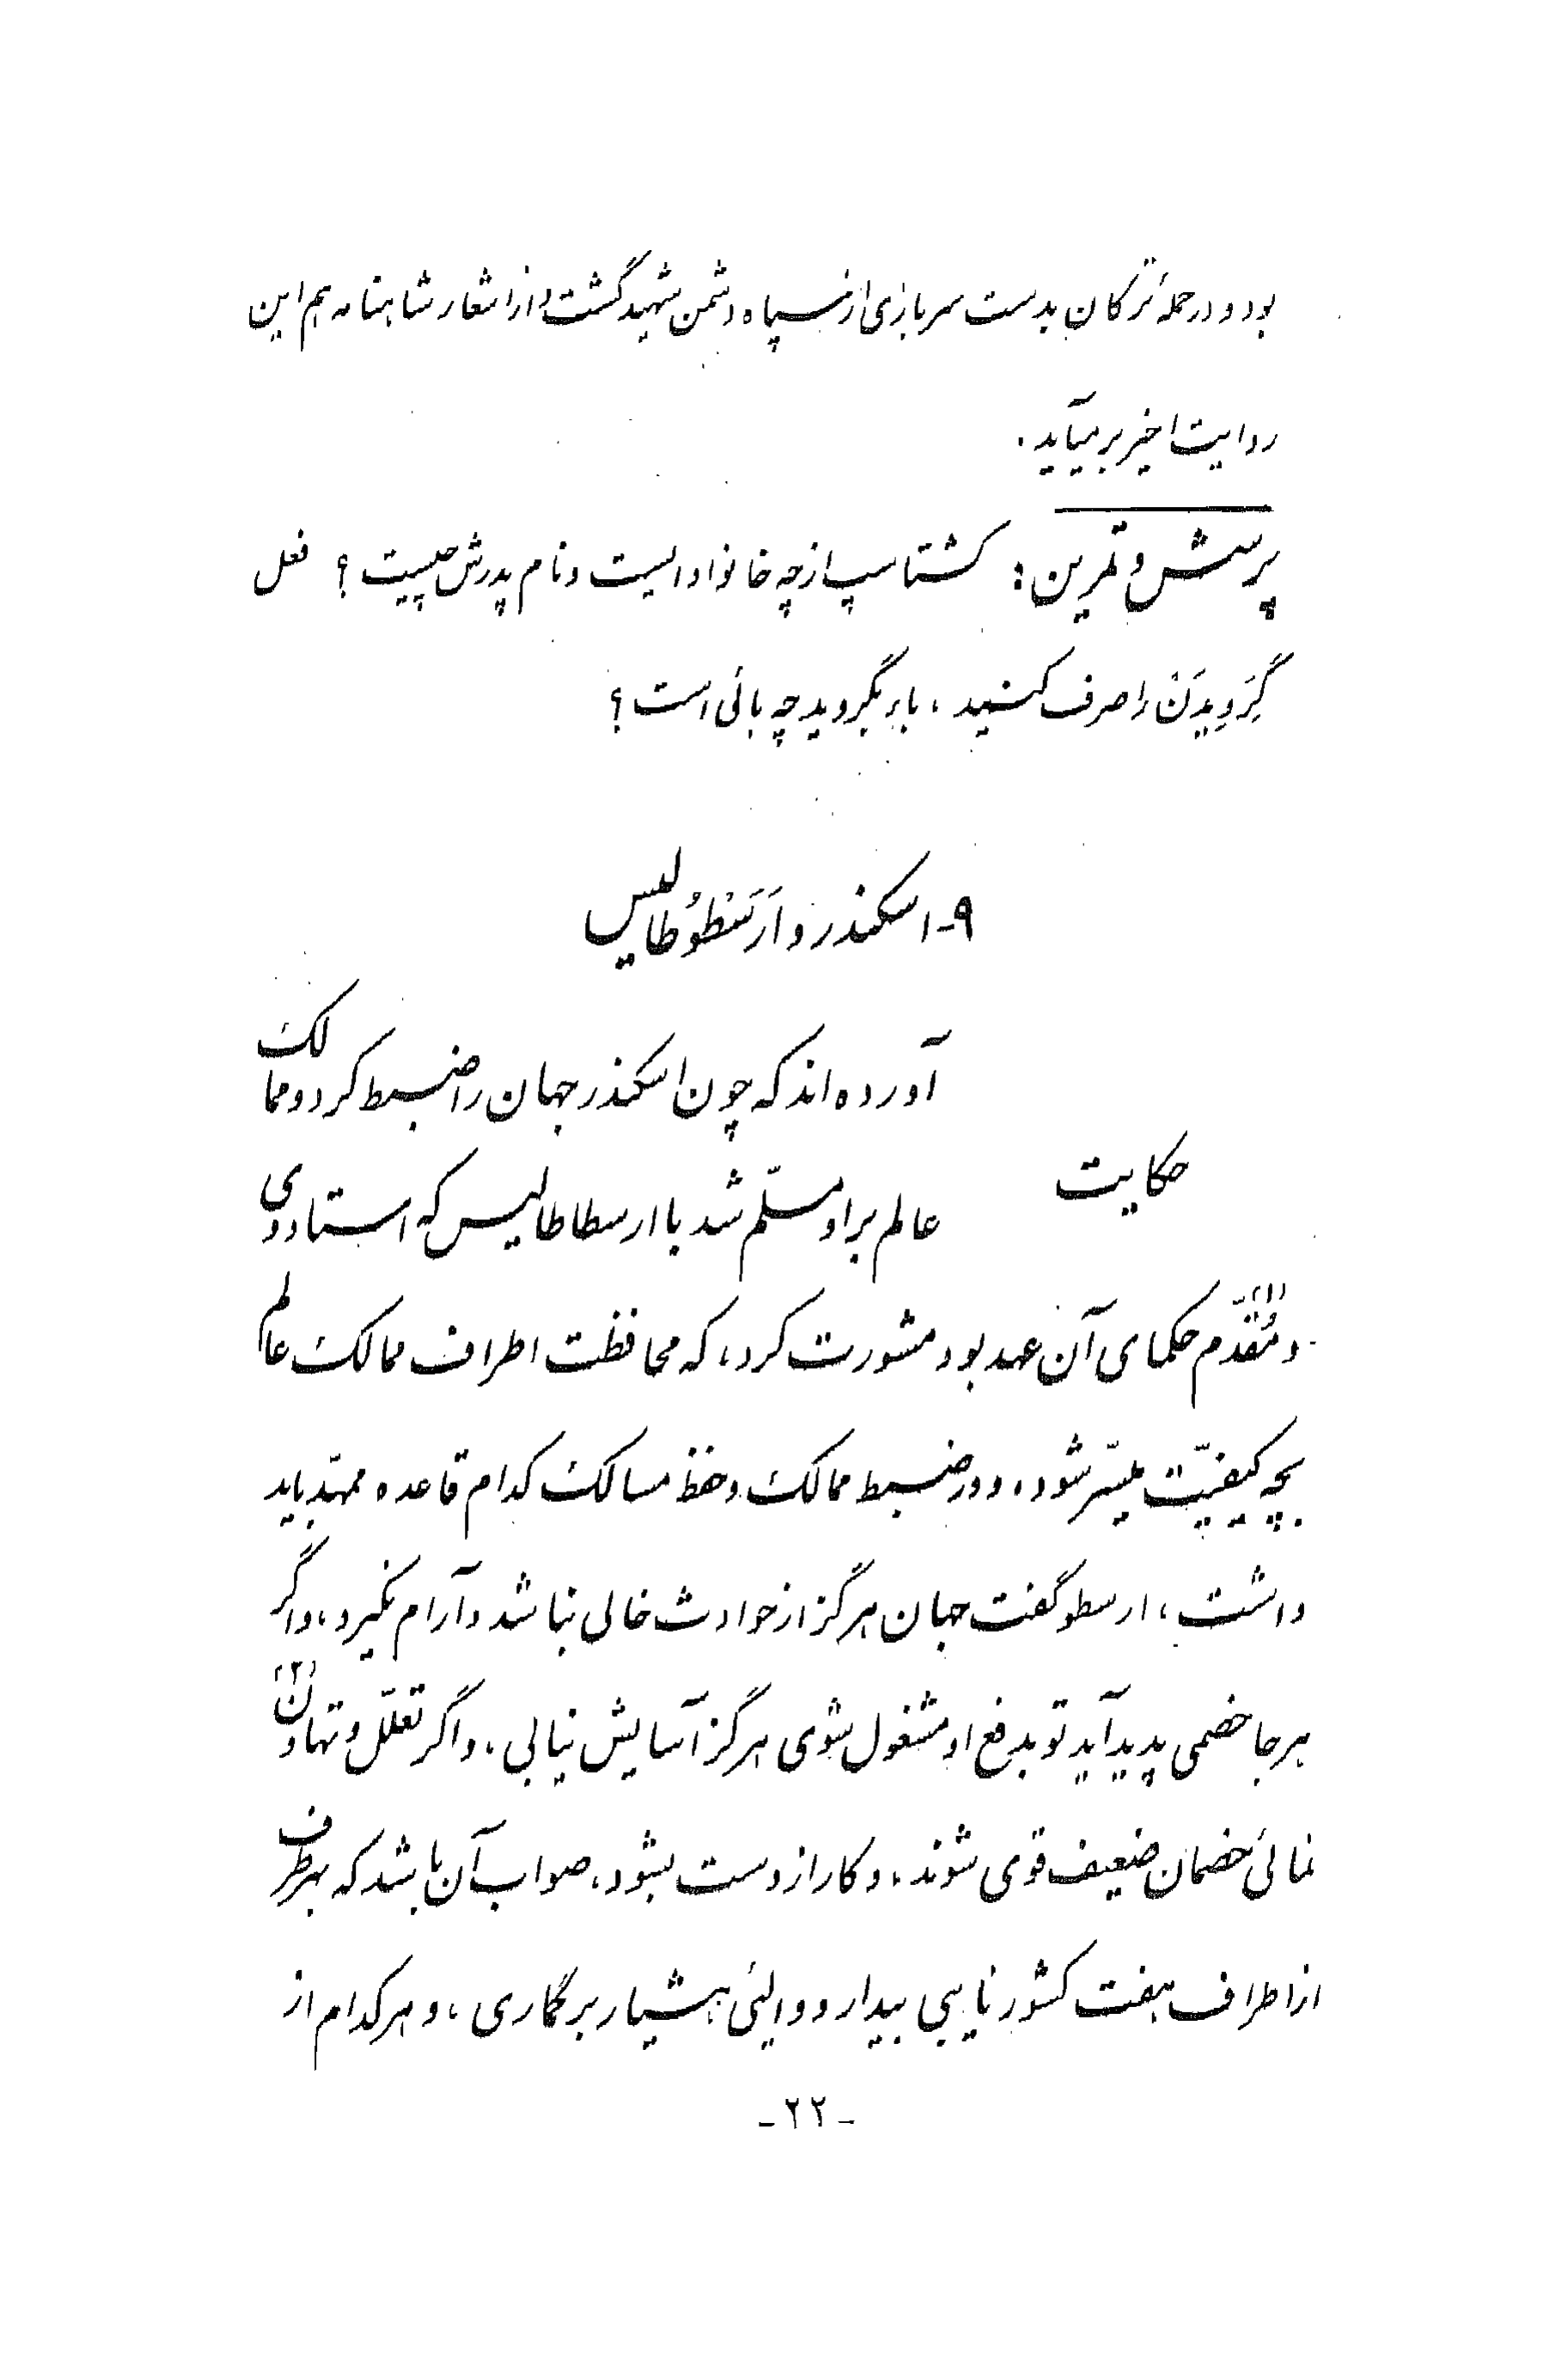 بود و در حملهٔ ترکان بدست سربازی از سپاه دشمن شهید گشت و از اشعار شاهنامه هم این
روایت اخیر بر میآید.
پرسش و تمرین: گشتاسپ از چه خانواده‌ایست و نام پدرش چیست؟ فعل
گِرَویدَنْ را صرف کنید، باءِ بگروید چه بائی است؟
۹- اسکندر و اَرَسْطُوُطالیس
حکایت
آورده‌اند که چون اسکندر جهان را ضبط کرد و ممالک
عالم بر او مسلّم شد با ارسطاطالیس که استاد وی
و مُقَدّم (۱) حکمای آن عهد بود مشورت کرد، که محافظت اطراف ممالک عالم
بچه کیفیّت میسّر شود، و در ضبط ممالک و حفظ مسالک کدام قاعده ممهّد باید
داشت، ارسطو گفت جهان هرگز از حوادث خالی نباشد و آرام نگیرد، و اگر
هر جا خصمی پدید آید تو بدفع او مشغول شوی هرگز آسایش نیابی، و اگر تعلّل و تهاون (۲)
نمائی خصمان ضعیف قوی شوند، و کار از دست بشود، صواب آن باشد که بهر طرف
از اطراف هفت کشور نایبی بیدار و والئی هشیار بر گماری، و هر کدام از
-۲۲-